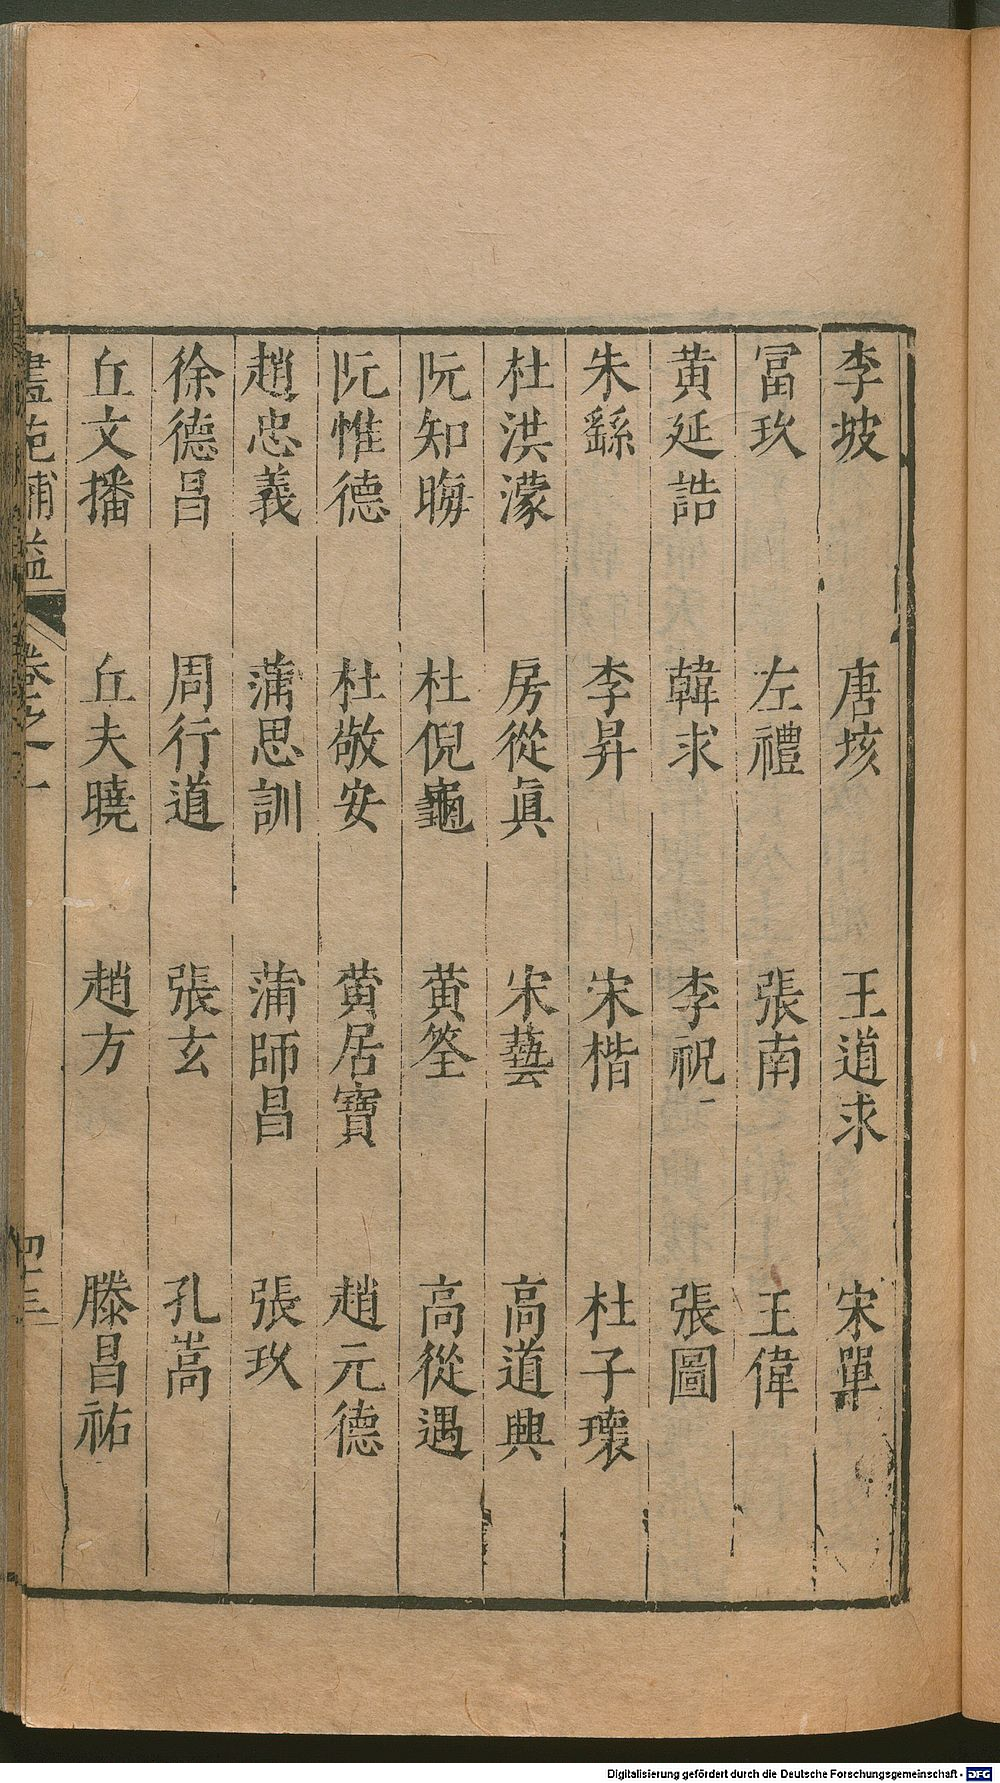 李坡 唐垓 王道求 宋單
冨玫 左禮 張南 王偉
黄延誥 韓求 李祝 張圖
朱繇 李昇 宋楷 杜子瓌
杜洪濛 房從眞 宋藝 高道興
阮知晦 杜倪龜 黄筌 高從遇
阮惟德 杜敬安 黄居寶 趙元德
趙忠義 蒲思訓 蒲師昌 張玫
徐德昌 周行道 張玄 孔嵩
丘文播 丘夫曉 趙方 滕昌祐
畫苑補益 卷之一 四十三
Digitalisierung gefördert durch die Deutsche Forschungsgemeinschaft - DFG